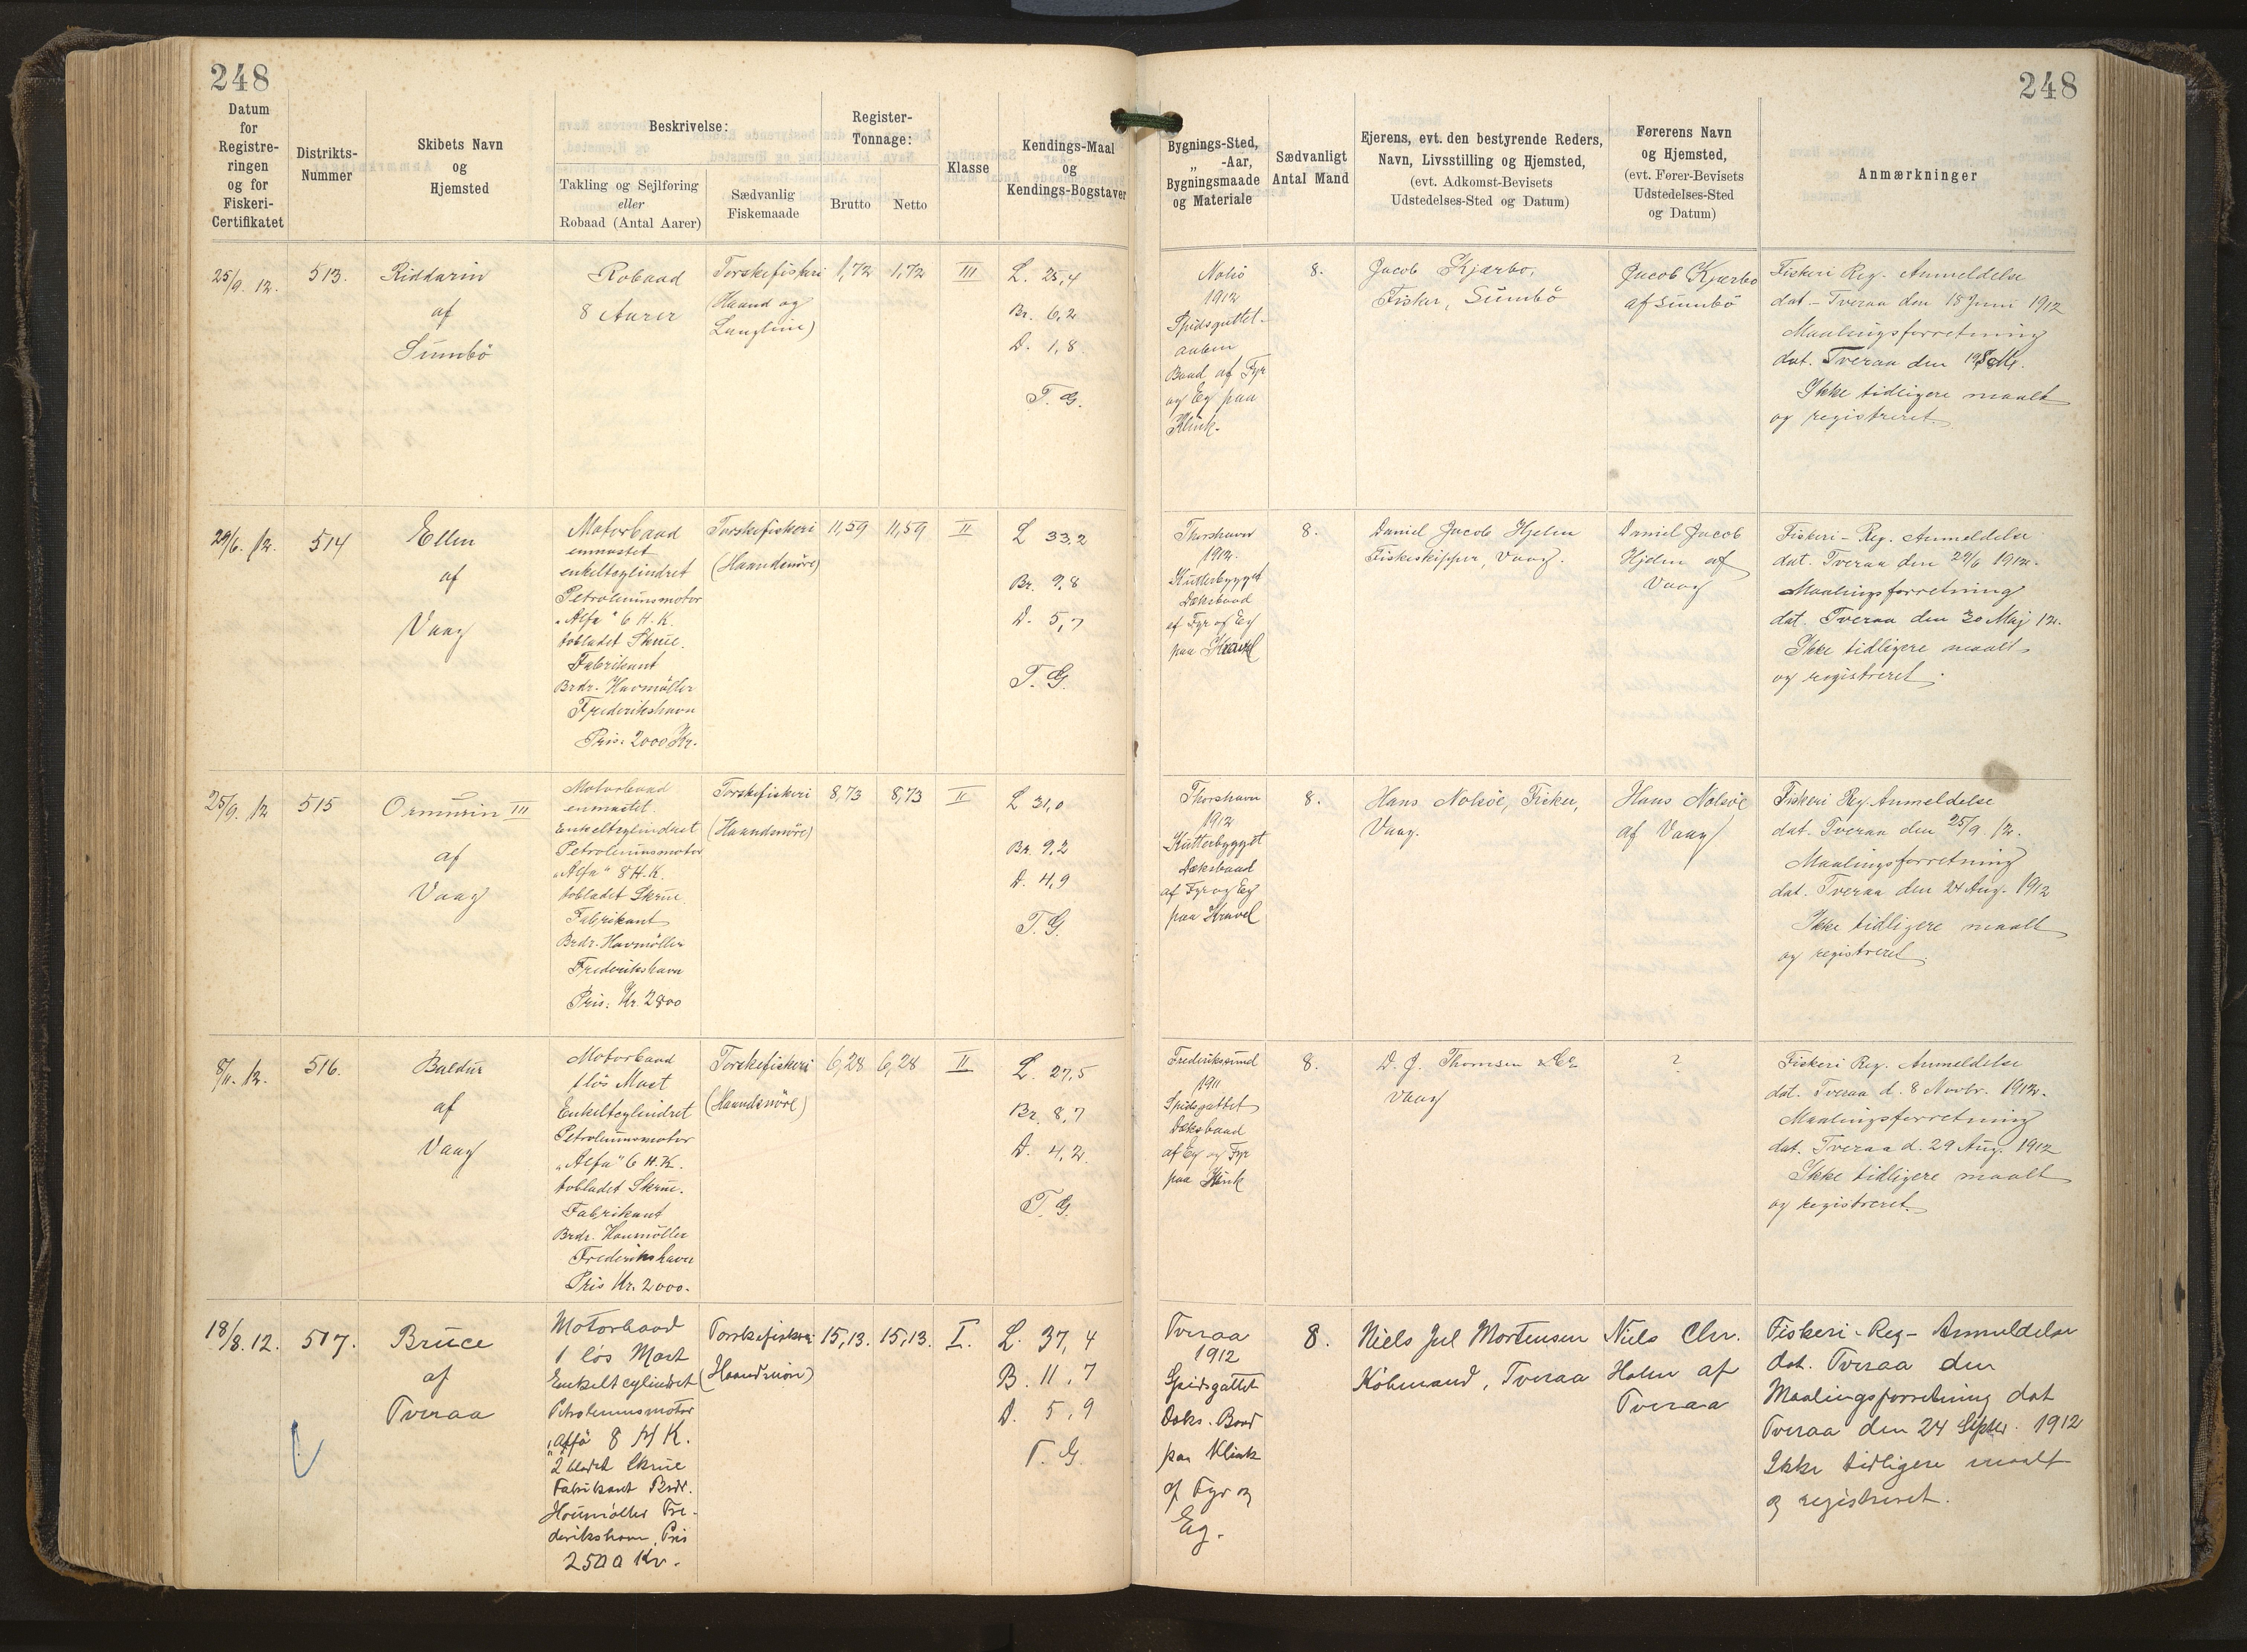 248
248
Datum
for
Registre-
ringen
og for
Fiskeri-
Certifikatet
Distrikts-
Nummer
Skibets Navn
og
Hjemsted
Beskrivelse:
Takling og Sejlføring
eller
Robaad (Antal Aarer)
Sædvanlig
Fiskemaade
Register-
Tonnage:
Brutto
Netto
Klasse
Kendings-Maal
og
Kendings-Bogstaver
Bygnings-Sted,
„ -Aar,
Bygningsmaade
og Materiale
Sædvanligt
Antal Mand
Ejerens, evt. den bestyrende Reders,
Navn, Livsstilling og Hjemsted,
(evt. Adkomst-Bevisets
Udstedelses-Sted og Datum)
Førerens Navn
og Hjemsted,
(evt. Fører-Bevisets
Udstedelses-Sted
og Datum)
Anmærkninger
25/9. 12.
513.
Riddarin
af
Sumbö
Robaad
8 Aarer
Torskefiskeri
(Haand og
Langline)
1,72
1,72
III
L. 25,4
Br. 6,2
D. 1,8
T. G.
Nolsö
1912
Spidsgattet
aaben
Baad af Fyr
og Eg paa
Klink.
8.
Jacob Kjærbo,
Fisker, Sumbö
Jacob Kjærbo
af Sumbö
Fiskeri Reg. Anmeldelse
dat. Tveraa den 18 Juni 1912
Maalingsforretning
dat. Tveraa den
Ikke tidligere maalt
og registreret.
29/6. 12.
514
Ellen
af
Vaag
Motorbaad
enmastet
enkeltcylindret
Petroleumsmotor
„Alfa" 6 H.K.
tobladet Skrue.
Fabrikant
Brdr. Houmöller
Frederikshavn
Pris: 2000 Kr.
Torskefiskeri
(Haandsnöre)
11,59
11,59
II
L 33,2
Br. 9,8
D. 5,7
T. G.
Thorshavn
1912.
Kutterbygget
Dæksbaad
af Fyr og Eg
paa Kravel
8.
Daniel Jacob Hjelm
Fiskeskipper, Vaag.
Daniel Jacob
Hjelm af
Vaag
Fiskeri-Reg. Anmeldelse
dat. Tveraa den 29/6 1912.
Maalingsforretning
dat. Tveraa den 30 Maj 12.
Ikke tidligere maalt
og registreret.
25/9. 12
515
Ormurin III
af
Vaag
Motorbaad
enmastet.
Enkeltcylindret
Petroleumsmotor
„Alfa" 8 H.K.
tobladet Skrue
Fabrikant
Brdr. Houmöller
Frederikshavn
Pris: Kr. 2800
Torskefiskeri
(Haandsnöre)
8,73
8,73
II
L 31,0
Br. 9,2
D. 4,9
T. G.
Thorshavn
1912
Kutterbygget
Dæksbaad
af Fyr og Eg
paa Kravel
8.
Hans Nolsöe, Fisker,
Vaag.
Hans Nolsöe
af Vaag
Fiskeri Reg. Anmeldelse
dat. Tveraa den 25/9. 12.
Maalingsforretning
dat. Tveraa den 24 Aug. 1912
Ikke tidligere maalt
og registreret.
8/11. 12.
516.
Baldur
af
Vaag
Motorbaad
1 lös Mast
Enkeltcylindret
Petroleumsmotor
„Alfa" 6 H.K.
tobladet Skrue.
Fabrikant
Brdr. Houmöller
Frederikshavn
Pris Kr. 2000.
Torskefiskeri
(Haandsnöre)
6,28
6,28
II
L. 27,5
Br. 8,7
D. 4,2
T. G.
Frederikssund
1911
Spidsgattet
Dæksbaad
af Eg og Fyr
paa Klink
8.
D. J. Thomsen & Co
Vaag
?
Fiskeri Reg. Anmeldelse
dat. Tveraa d. 8 Novbr. 1912.
Maalingsforretning
dat. Tveraa d. 29 Aug. 1912
Ikke tidligere maalt
og registreret.
18/8. 12.
517.
Bruce
af
Tveraa
Motorbaad
1 lös Mast
Enkeltcylindret
Petroleumsmotor
„Alfa 8 H K.
2 bladet Skrue
Fabrikant Brdr.
Houmöller Fre-
derikshavn, Pris
2500 Kr.
Torskefiskeri
(Haandsnöre)
15,13.
15,13.
I.
L. 37,4
B. 11,7
D. 5,9
T. G.
Tveraa
1912
Spidsgattet
Dæks. Baad
paa Klink
af Fyr og
Eg.
8.
Niels Jul Mortensen
Köbmand, Tveraa
Niels Chr.
Holm af
Tveraa
Fiskeri-Reg- Anmeldelse
dat. Tveraa den
Maalingsforretning dat
Tveraa den 24 Septbr. 1912
Ikke tidligere maalt
og registreret.